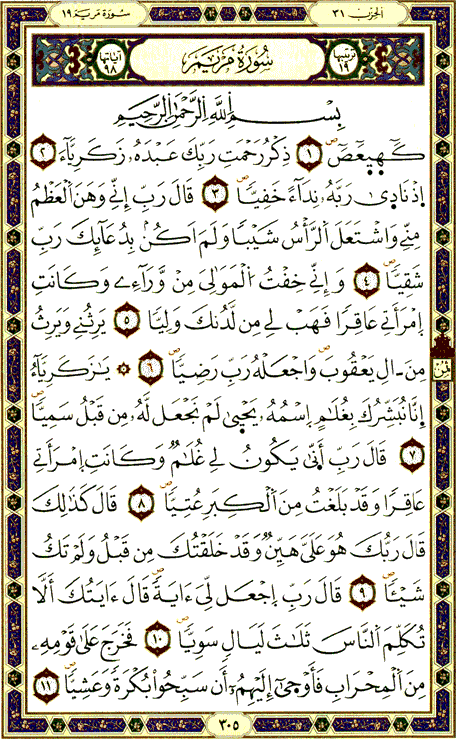 الحزب ٣١ سورة مريم ١٩
ترتيبها ١٩ سُورَةُ مَرْيَمَ آياتها ٩٨
بِسْمِ اللَّهِ الرَّحْمَٰنِ الرَّحِيمِ
كَٓهَيَعَٓصَ ١ ذِكْرُ رَحْمَتِ رَبِّكَ عَبْدَهُۥ زَكَرِيَّآءَ ٢
اِذْ نَادَىٰ رَبَّهُۥ نِدَآءً خَفِيّٗا ٣ قَالَ رَبِّ إِنِّي وَهَنَ اَلْعَظْمُ
مِنِّي وَاشْتَعَلَ اَلرَّأْسُ شَيْبٗا وَلَمَ اَكُنۢ بِدُعَآئِكَ رَبِّ
شَقِيّٗا ٤ وَإِنِّي خِفْتُ اُلْمَوَٰلِيَ مِنْ وَّرَآءِے وَكَانَتِ
اِمْرَأَتِي عَاقِرٗا فَهَبْ لِي مِن لَّدُنكَ وَلِيّٗا ٥ يَرِثُنِي وَيَرِثُ
مِنَ ـالِ يَعْقُوبَ وَاجْعَلْهُ رَبِّ رَضِيّٗا ٦ ۞ يَٰزَكَرِيَّآءُ
اِنَّا نُبَشِّرُكَ بِغُلَٰمٍ اِسْمُهُۥ يَحْيَىٰ لَمْ نَجْعَل لَّهُۥ مِن قَبْلُ سَمِيّٗا
٧ قَالَ رَبِّ أَنَّىٰ يَكُونُ لِي غُلَٰمٌ وَكَانَتِ اِمْرَأَتِي
عَاقِرٗا وَقَدْ بَلَغْتُ مِنَ اَلْكِبَرِ عُتِيّٗا ٨ قَالَ كَذَٰلِكَ
قَالَ رَبُّكَ هُوَ عَلَيَّ هَيِّنٌ وَقَدْ خَلَقْتُكَ مِن قَبْلُ وَلَمْ تَكُ
شَيْـٔٗا ٩ قَالَ رَبِّ اِجْعَل لِّيَ ءَايَةٗ قَالَ ءَايَتُكَ أَلَّا
تُكَلِّمَ اَلنَّاسَ ثَلَٰثَ لَيَالٖ سَوِيّٗا ١٠ فَخَرَجَ عَلَىٰ قَوْمِهِۦ
مِنَ اَلْمِحْرَابِ فَأَوْحَىٰ إِلَيْهِمُۥٓ أَن سَبِّحُواْ بُكْرَةٗ وَعَشِيّٗا ١١
٣٠٥